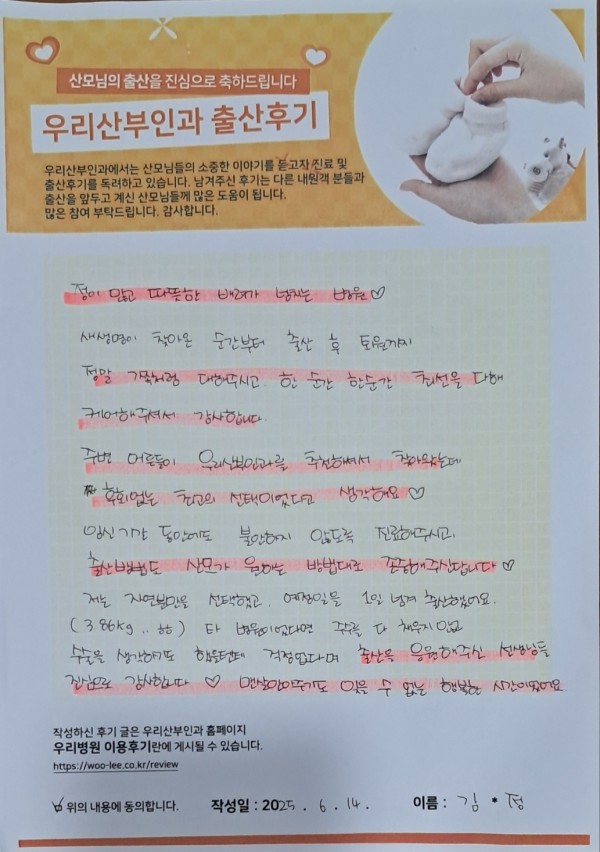 산모님의 출산을 진심으로 축하드립니다
우리산부인과 출산후기
우리산부인과에서는 산모님들의 소중한 이야기를 듣고자 진료 및
출산후기를 독려하고 있습니다. 남겨주신 후기는 다른 내원객 분들과
출산을 앞두고 계신 산모님들께 많은 도움이 됩니다.
많은 참여 부탁드립니다. 감사합니다.
정이 많고 따뜻한 배려가 넘치는 병원♡
새생명이 찾아온 순간부터 출산 후 퇴원까지
정말 가족처럼 대해주시고, 한 순간 한순간 최선을 다해
케어해주셔서 감사합니다.
주변 어른들이 우리산부인과를 추천해주셔서 찾아왔는데
후회없는 최고의 선택이었다고 생각해요♡
임신기간 동안에도 불안하지 않도록 진료해주시고,
출산방법도 산모가 원하는 방법대로 존중해주신답니다♡
저는 자연분만을 선택했고, 예정일을 1일 넘겨 출산했어요.
(3.86kg..ㅎㅎ) 타 병원이었다면 주수를 다 채우지 않고
수술을 생각해도 했을텐데 걱정없다며 출산을 응원해주신 선생님들
진심으로 감사합니다 ♡ 맨살안아주기도 잊을 수 없는 행복한 시간이었어요.
작성하신 후기 글은 우리산부인과 홈페이지
우리병원 이용후기란에 게시될 수 있습니다.
https://woo-lee.co.kr/review
위의 내용에 동의합니다. 작성일 : 2025. 6. 14. 이름 : 김 • 정